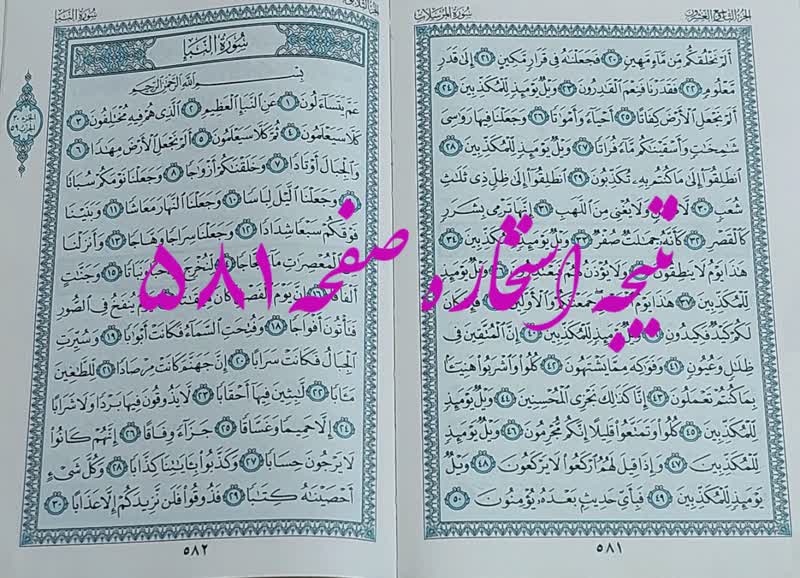 الجزء التاسع والعشرون
سورة المرسلات
ألم نخلقكم من ماء مهين ٢٠ فجعلناه في قرار مكين ٢١ إلى قدر
معلوم ٢٢ فقدرنا فنعم القادرون ٢٣ ويل يومئذ للمكذبين ٢٤
ألم نجعل الأرض كفاتا ٢٥ أحياء وأمواتا ٢٦ وجعلنا فيها رواسي
شامخات وأسقيناكم ماء فراتا ٢٧ ويل يومئذ للمكذبين ٢٨
انطلقوا إلى ما كنتم به تكذبون ٢٩ انطلقوا إلى ظل ذي ثلاث
شعب ٣٠ لا ولا يغني من اللهب ٣١ إنها ترمي بشرر
كالقصر ٣٢ كأنه جمالت صفر ٣٣ ويل يومئذ للمكذبين ٣٤
هذا يوم لا ينطقون ولا يؤذن لهم فيعتذرون ٣٦ ويل يومئذ
للمكذبين ٣٧ هذا يوم جمعناكم والأولين ٣٨ فإن كان
لكم كيد فكيدون ٣٩ ويل يومئذ للمكذبين ٤٠ إن المتقين في
ظلال وعيون ٤١ وفواكه مما يشتهون ٤٢ كلوا واشربوا هنيئا
بما كنتم تعملون ٤٣ إنا كذلك نجزي المحسنين ٤٤ ويل يومئذ
للمكذبين ٤٥ كلوا وتمتعوا قليلا إنكم مجرمون ٤٦ ويل يومئذ
للمكذبين ٤٧ وإذا قيل لهم اركعوا لا يركعون ٤٨ ويل
يومئذ للمكذبين ٤٩ فبأي حديث بعده يؤمنون ٥٠
٥٨١
سورة النبإ
سورة النبإ
بسم الله الرحمن الرحيم
عم يتساءلون ١ عن النبإ العظيم ٢ الذي هم فيه مختلفون ٣
كلا سيعلمون ٤ ثم كلا سيعلمون ٥ ألم نجعل الأرض مهادا ٦
والجبال أوتادا ٧ وخلقناكم أزواجا ٨ وجعلنا نومكم سباتا
٩ وجعلنا الليل لباسا ١٠ وجعلنا النهار معاشا ١١ وبنينا
فوقكم سبعا شدادا ١٢ وجعلنا سراجا وهاجا ١٣ وأنزلنا
المعصرات ماء ثجاجا ١٤ لنخرج به حبا ونباتا ١٥ وجنات
ألفافا ١٦ إن يوم الفصل كان ينفخ في الصور
فتأتون أفواجا ١٨ وفتحت السماء فكانت أبوابا ١٩ وسيرت
الجبال فكانت سرابا ٢٠ إن جهنم كانت مرصادا ٢١ للطاغين
مآبا ٢٢ لابثين فيها أحقابا ٢٣ لا يذوقون فيها بردا ولا شرابا
٢٤ إلا حميما وغساقا ٢٥ جزاء وفاقا ٢٦ إنهم كانوا
لا يرجون حسابا ٢٧ وكذبوا بآياتنا كذابا ٢٨ وكل شيء
أحصيناه كتابا ٢٩ فذوقوا فلن نزيدكم إلا عذابا ٣٠
٥٨٢
نتیجه استخاره صفحه ۵۸۱